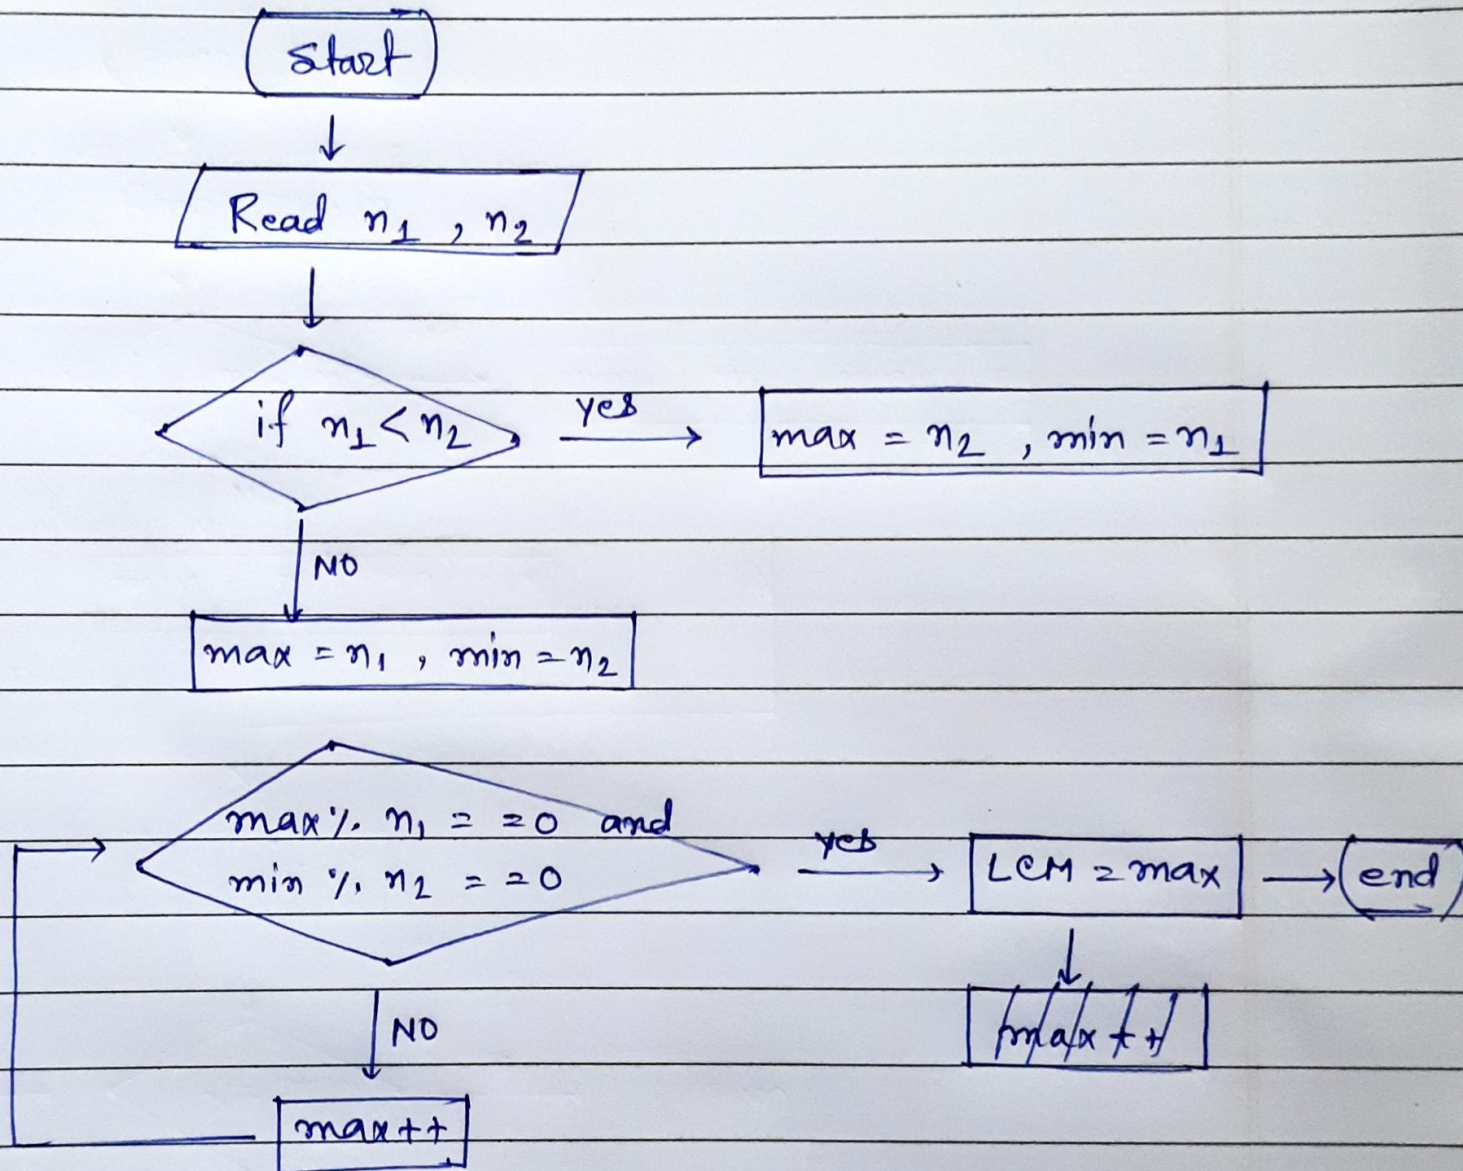 Start
Read n1 , n2
if n1 < n2
yes
max = n2 , min = n1
NO
max = n1 , min = n2
max % n1 = = 0 and
min % n2 = = 0
yes
LCM = max
end
max + +
NO
max + +